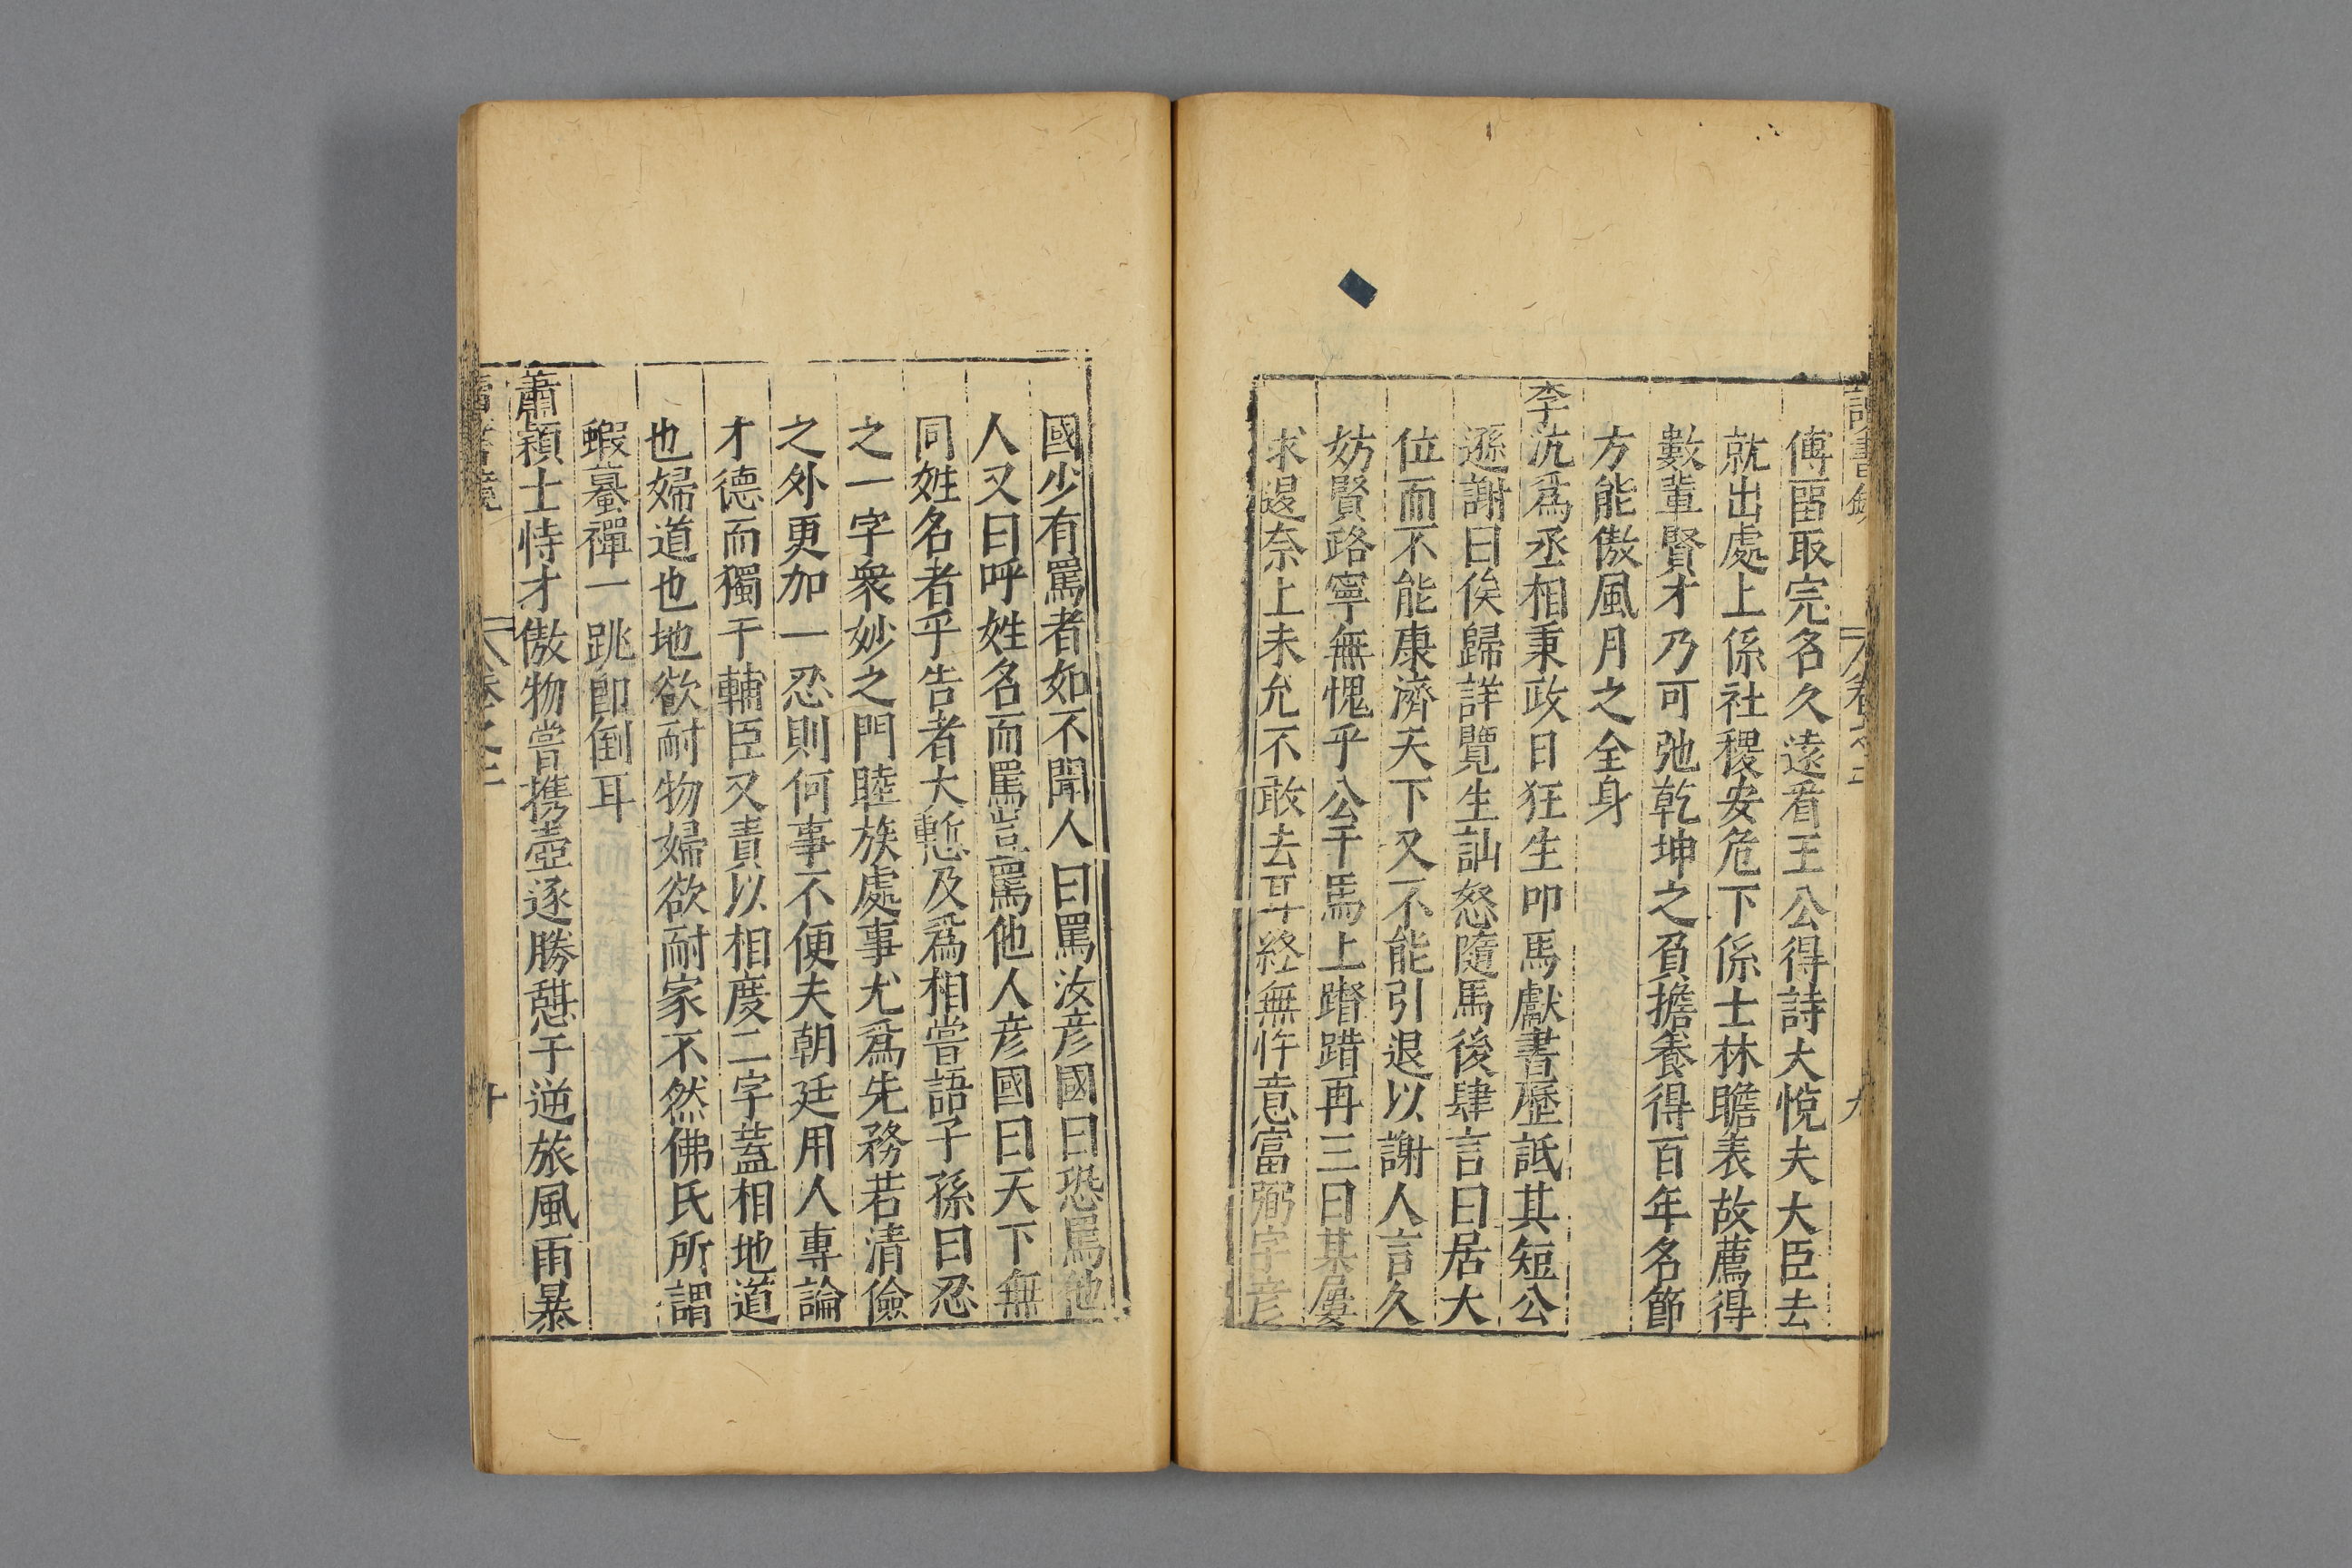 傅留取完名久遠看王公得詩大悅夫大臣去
就出處上係社稷安危下係士林瞻表故薦得
數輩賢才乃可弛乾坤之負擔養得百年名節
方能傲風月之全身
李沆爲丞相秉政日狂生叩馬獻書歷詆其短公
遜謝曰俟歸詳覽生訕怒隨馬後肆言曰居大
位而不能康濟天下又不能引退以謝人言久
妨賢路寧無愧乎公于馬上踖踖再三曰某屢
求退奈上未允不敢去耳終無忤意富弼字彦
國少有罵者如不聞人曰罵汝彦國曰恐罵他
人又曰呼姓名而罵豈罵他人彦國曰天下無
同姓名者乎告者大慙及爲相嘗語子孫曰忍
之一字衆妙之門睦族處事尤爲先務若清儉
之外更加一忍則何事不便夫朝廷用人專論
才德而獨于輔臣又責以相度二字蓋相地道
也婦道也地欲耐物婦欲耐家不然佛氏所謂
蝦蟇禪一跳卽倒耳
蕭穎士恃才傲物嘗携壺逐勝憇于逆旅風雨暴